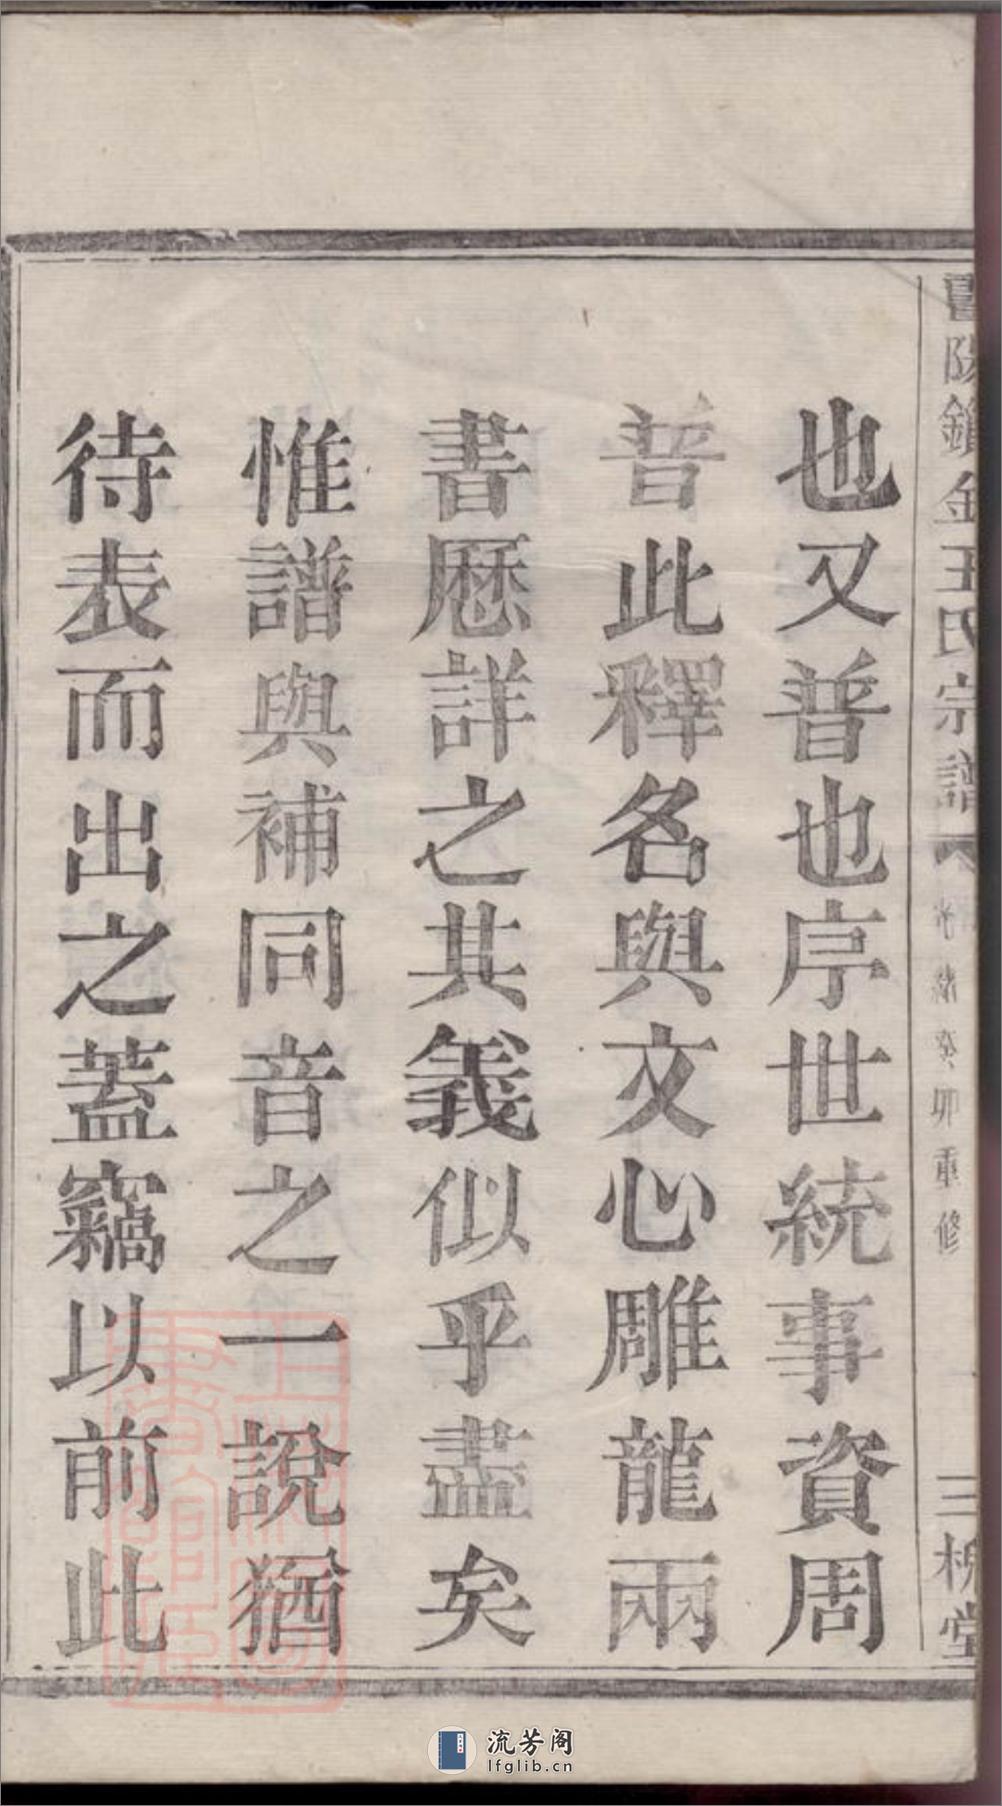 暨陽鎖金王氏宗譜 光緒癸卯重修 三槐堂
也又普也序世統事資周
普此釋名與文心雕龍兩
書歷詳之其義似乎盡矣
惟譜與補同音之一說猶
待表而出之蓋竊以前此
流芳阁
lfglib.cn